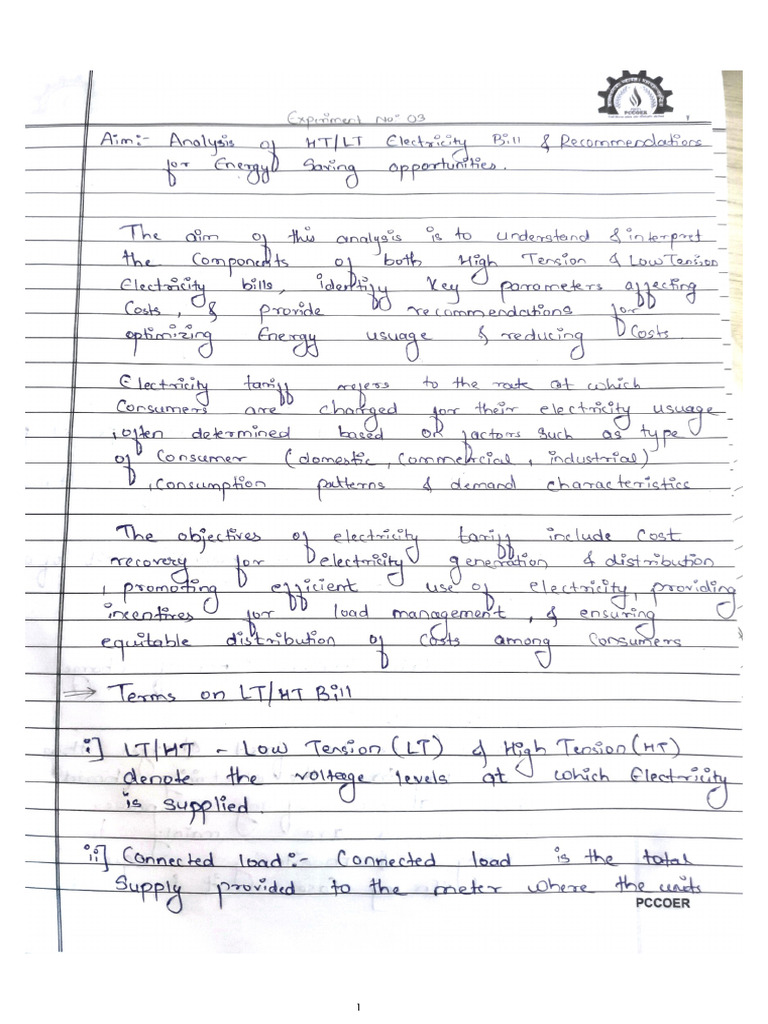 PCCOER
Experiment No: 03
Aim:- Analysis of HT/LT Electricity Bill & Recommendations
for Energy Saving opportunities.
The aim of this analysis is to understand & interpret
the Components of both High Tension & Low Tenison
Electricity bills, identify key parameters affecting
Costs, & provide recommendations for
optimizing Energy usuage & reducing Costs.
Electricity tariff refers to the rate at which
Consumers are charged for their electricity usuage
, often determined based on factors such as type
of Consumer (domestic, Commercial, industrial)
, Consumption patterns & demand characteristics
The objectives of electricity tariff include cost
recovery for electricity generation & distribution
, promoting efficient use of electricity, providing
incentives for load management, & ensuring
equitable distribution of Costs among Consumers
⇒ Terms on LT/HT Bill
i] LT/HT - Low Tension (LT) & High Tension (HT)
denote the voltage levels at which Electricity
is supplied.
ii] Connected load:- Connected load is the total
Supply provided to the meter where the units
PCCOER
1